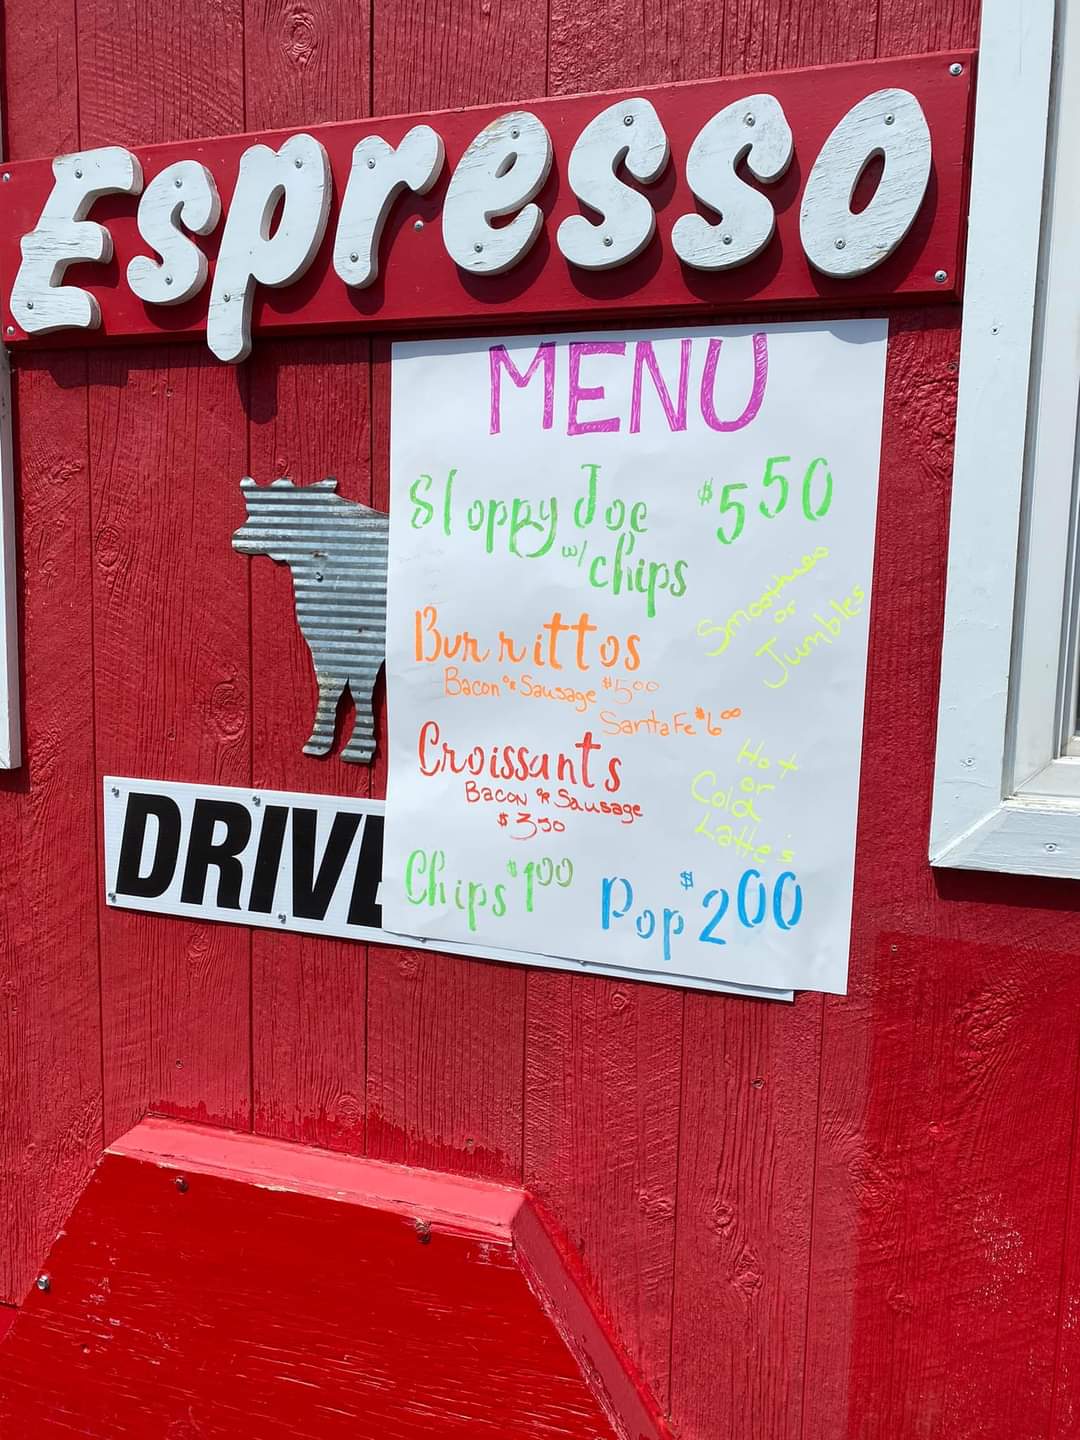 Espresso
MENU
Sloppy Joe $5.50
w/ chips
Smoothies
or
Jumbles
Burrittos
Bacon or Sausage $5.00
Santa Fe $6.00
Croissants
Bacon or Sausage
$3.50
Hot
or
Cold
Latte's
Chips $1.00
Pop $2.00
DRIVE